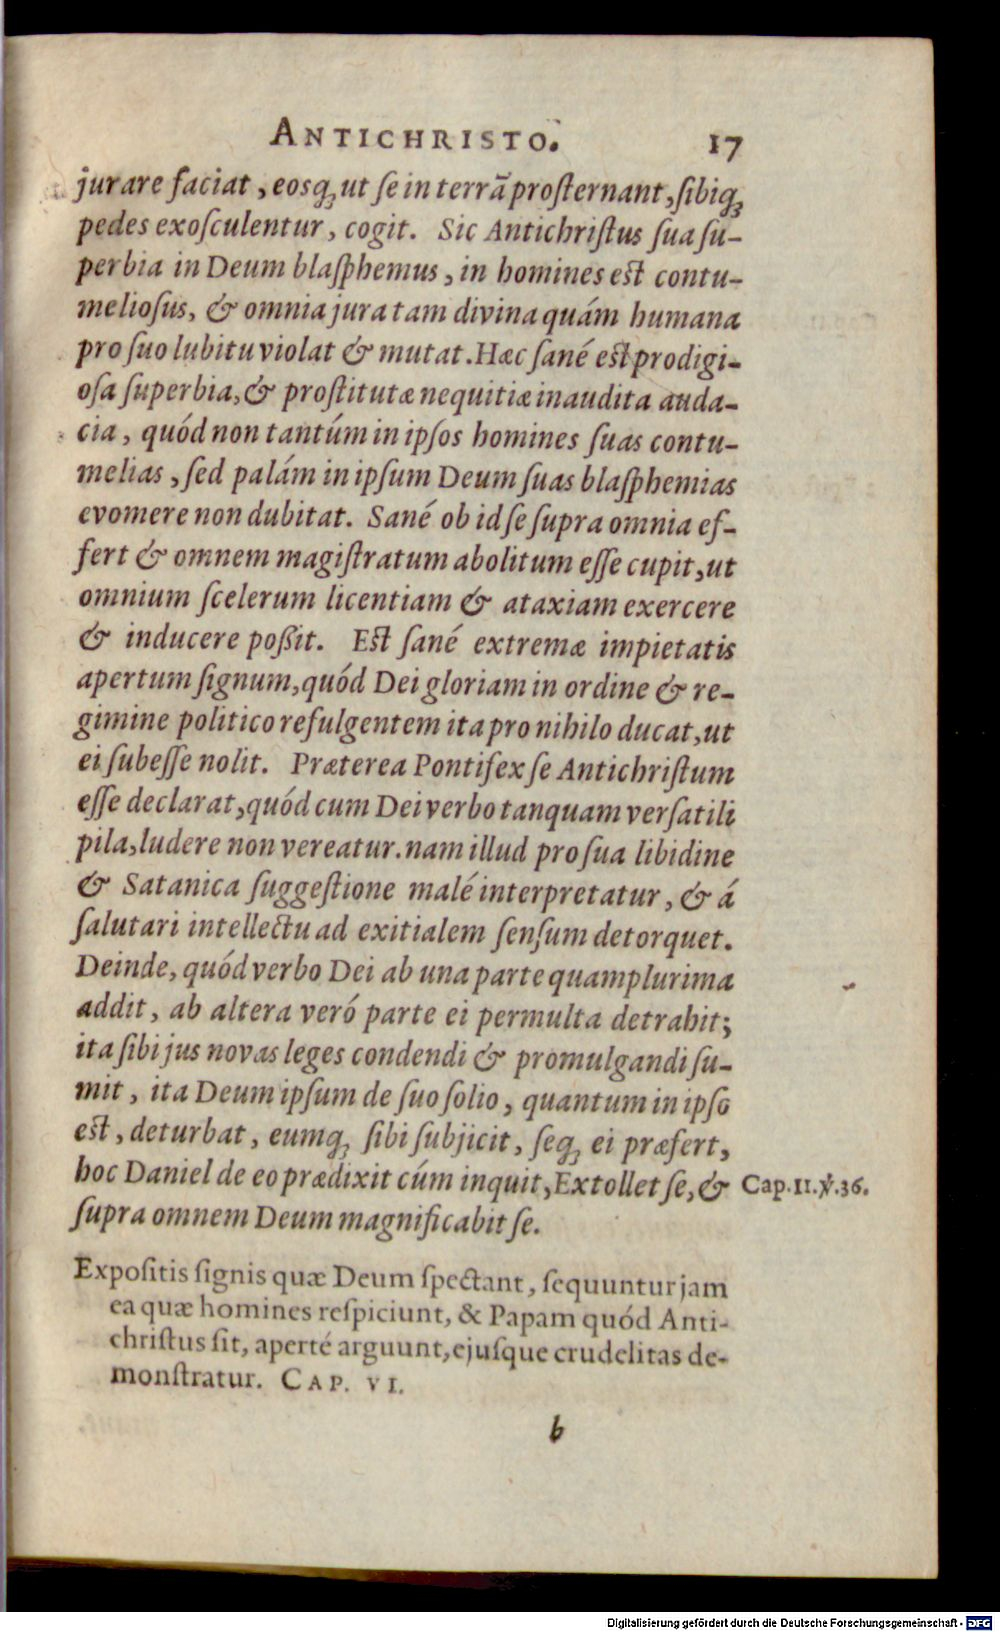 ANTICHRISTO. 17
jurare faciat, eosq; ut ſe in terrã proſternant, ſibiq;
pedes exoſculentur, cogit. Sic Antichriſtus ſua ſu-
perbia in Deum blaſphemus, in homines eſt contu-
melioſus, & omnia jura tam divina quám humana
pro ſuo lubitu violat & mutat. Hæc ſané eſt prodigi-
oſa ſuperbia, & proſtitutæ nequitiæ inaudita auda-
cia, quód non tantúm in ipſos homines ſuas contu-
melias, ſed palám in ipſum Deum ſuas blaſphemias
evomere non dubitat. Sané ob id ſe ſupra omnia ef-
fert & omnem magiſtratum abolitum eſſe cupit, ut
omnium ſcelerum licentiam & ataxiam exercere
& inducere poßit. Eſt ſané extremæ impietatis
apertum ſignum, quód Dei gloriam in ordine & re-
gimine politico refulgentem ita pro nihilo ducat, ut
ei ſubeſſe nolit. Præterea Pontifex ſe Antichriſtum
eſſe declarat, quód cum Dei verbo tanquam verſatili
pila, ludere non vereatur. nam illud pro ſua libidine
& Satanica ſuggeſtione malé interpretatur, & á
ſalutari intellectu ad exitialem ſenſum detorquet.
Deinde, quód verbo Dei ab una parte quamplurima
addit, ab altera veró parte ei permulta detrahit;
ita ſibi jus novas leges condendi & promulgandi ſu-
mit, ita Deum ipſum de ſuo ſolio, quantum in ipſo
eſt, deturbat, eumq; ſibi ſubjicit, ſeq; ei præfert,
hoc Daniel de eo prædixit cúm inquit, Extollet ſe, & Cap. 11. ℣. 36.
ſupra omnem Deum magnificabit ſe.
Expoſitis ſignis quæ Deum ſpectant, ſequuntur jam
ea quæ homines reſpiciunt, & Papam quód Anti-
chriſtus ſit, aperté arguunt, ejuſque crudelitas de-
monſtratur. CAP. VI.
b
Digitalisierung gefördert durch die Deutsche Forschungsgemeinschaft - DFG